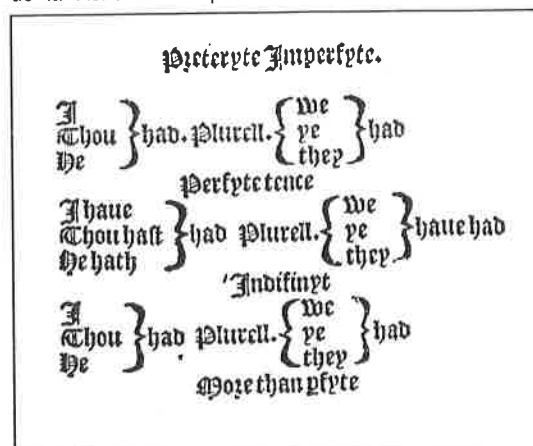 Preteryte Imperfyte.
I
Thou
He
had. Plurell.
we
ye
they
had
Perfyte tence
I haue
Thou hast
He hath
had Plurell.
We
ye
they
haue had
Indifinyt
I
Thou
He
had Plurell.
We
ye
they
had
More than pfyte